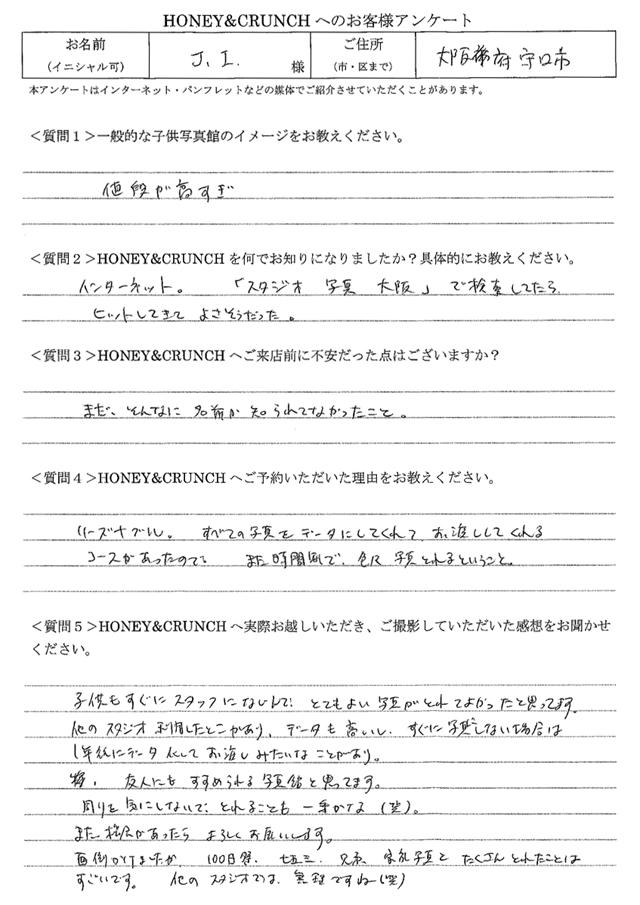 HONEY&CRUNCH へのお客様アンケート
お名前
(イニシャル可)
J. I. 様
ご住所
(市・区まで)
大阪府 守口市
本アンケートはインターネット・パンフレットなどの媒体でご紹介させていただくことがあります。
＜質問１＞一般的な子供写真館のイメージをお教えください。
値段が高すぎ
＜質問２＞HONEY&CRUNCH を何でお知りになりましたか？具体的にお教えください。
インターネット。 「スタジオ 写真 大阪」で検索してたら
ヒットしてきて よさそうだった。
＜質問３＞HONEY&CRUNCH へご来店前に不安だった点はございますか？
まだ、そんなに 名前が 知られてなかったこと。
＜質問４＞HONEY&CRUNCH へご予約いただいた理由をお教えください。
リーズナブル。 すべての写真をデータにしてくれて お渡ししてくれる
コースがあったので。 また時間制で、色んな 写真とれるということ。
＜質問５＞HONEY&CRUNCH へ実際お越しいただき、ご撮影していただいた感想をお聞かせ
ください。
子供もすぐにスタッフになじんで！ とてもよい写真がとれてよかったと思ってます。
他のスタジオ利用したとこがあり、データも高いし、すぐに写真しない場合は
1年後にデータ化して お渡しみたいなことがあり。
友人にも すすめられる写真館と思ってます。
周りを気にしないで、とれることも 一番かな（笑）。
また機会があったら よろしくお願いします。
面倒かけましたが、100日祭、七五三、兄弟、家族写真と たくさんとれたことは
すごいです。 他のスタジオでは、無理ですね（笑）